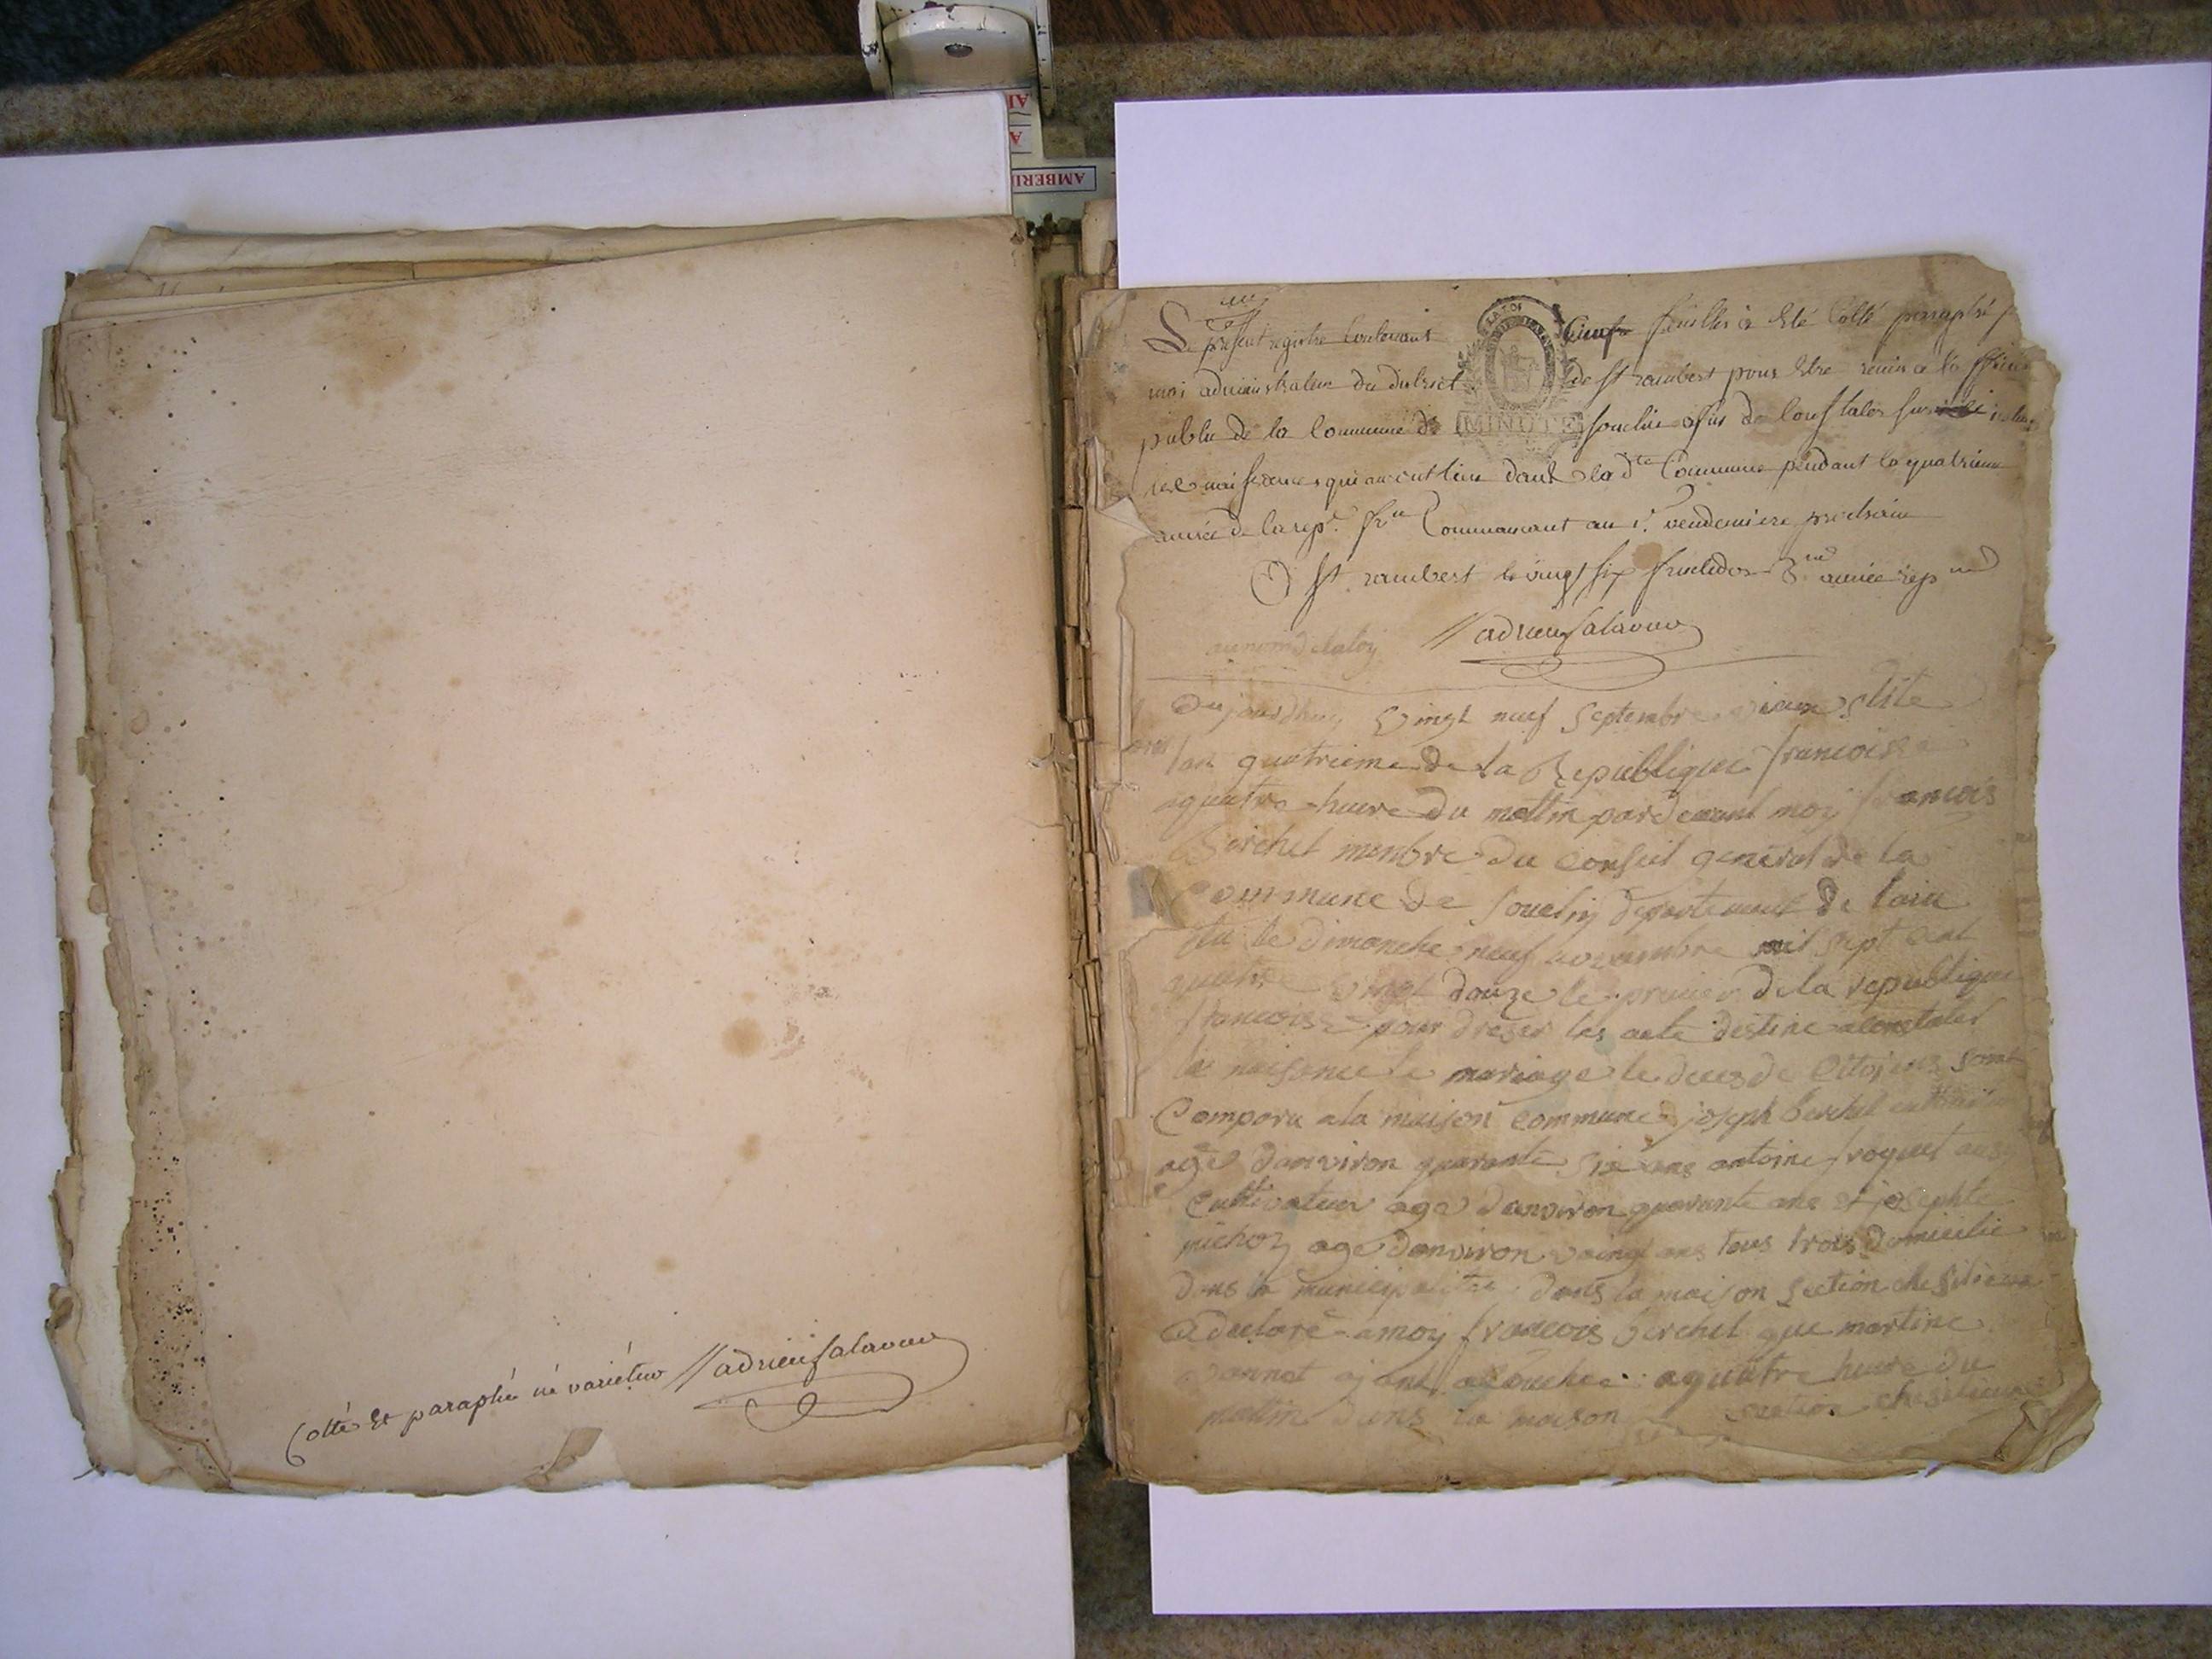 Cotté Et paraphé ne varietur Hadrien Salavuard
Le present registre Contenant feuilles a Eté Cotté paraphé p
moi administrateur du district de St rambert pour Etre remis a l'officier
public de la Commune de Souclin afin de Constater
les naissances qui auront lieu dans lad.te Commune pendant la quatrieme
année de la rep.e fr.se Commancant au 1.r vendemiere prochain
A St rambert le vingt six fructidor 3.me année rep.ne
MINUTE
LA LOI
au nom de la loy
aujourdhuy vingt neuf Septembre vieux stile
lan quatrieme de la Republique francoise
a quatre heure du mattin pardevant moy francois
Berchet menbre du conseil general de la
Commune de souclin departement de lain
elu le dimanche neuf novembre mil sept cent
quatre vingt douze le premier de la republique
francoise pour dreser les acte destine a constater
la naisance le mariage le deces de Citojens sont
Comparu a la maison commune joseph berchet cultivateur
agé danviron quarante six ans antoine froquet aussi
Cultivateur age danviron quarante ans et josephte
michoz age danviron vaingt ans tous trois domicilie
dans la municipalite dans la maison section
a declare a moy francois berchet que martine
vannet ajant acouchee a quatre heure du
mattin dans la maison section
AMBERI